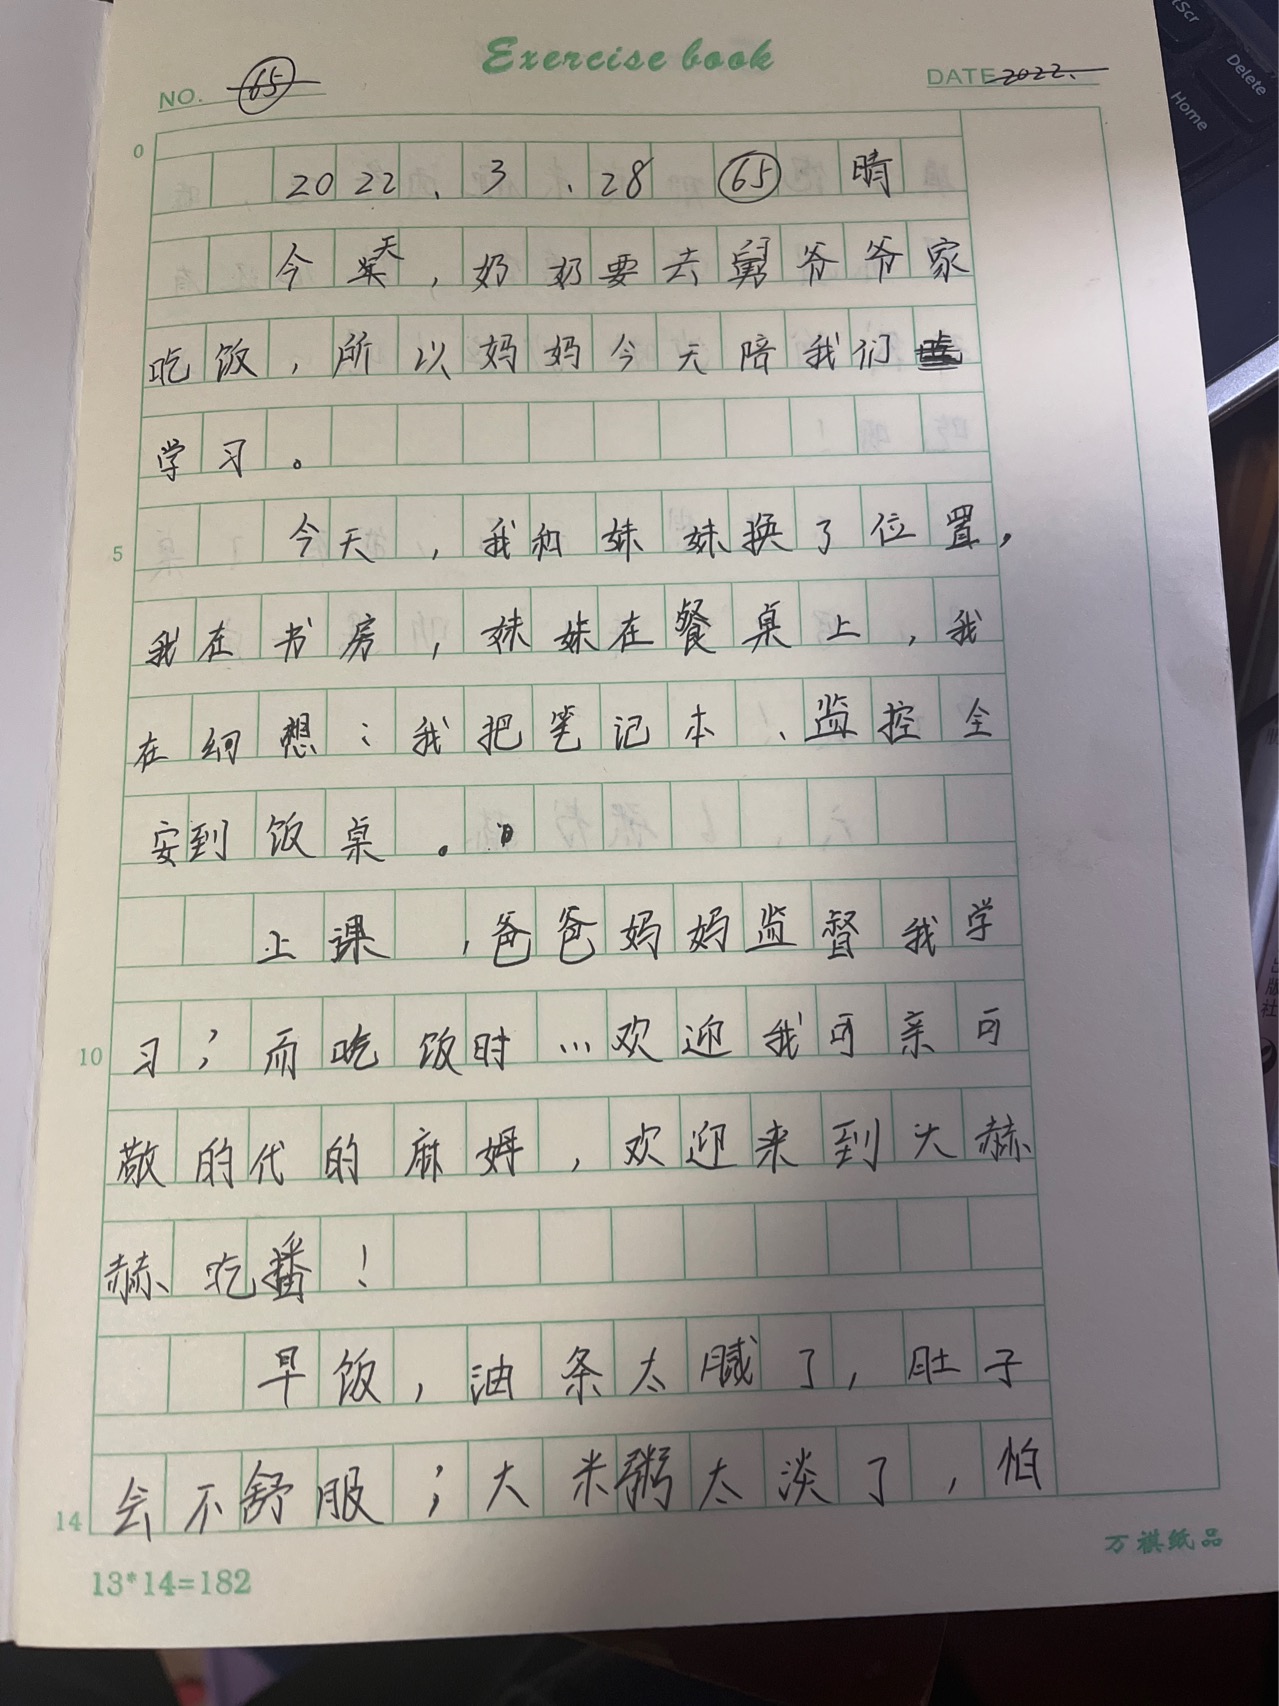 Exercise book
NO. 65
DATE 2022.
0
2022、3、28 65 晴
今天，奶奶要去舅爷爷家
吃饭，所以妈妈今天陪我们
学习。
5
今天，我和妹妹换了位置，
我在书房，妹妹在餐桌上，我
在细想：我把笔记本、监控全
安到饭桌。
上课，爸爸妈妈监督我学
10
习；而吃饭时…欢迎我可亲可
敬的代的麻姆，欢迎来到大赫
赫吃播！
早饭，油条太腻了，肚子
14
会不舒服；大米粥太淡了，怕
13*14=182
万祺纸品
Delete
Home
版
社